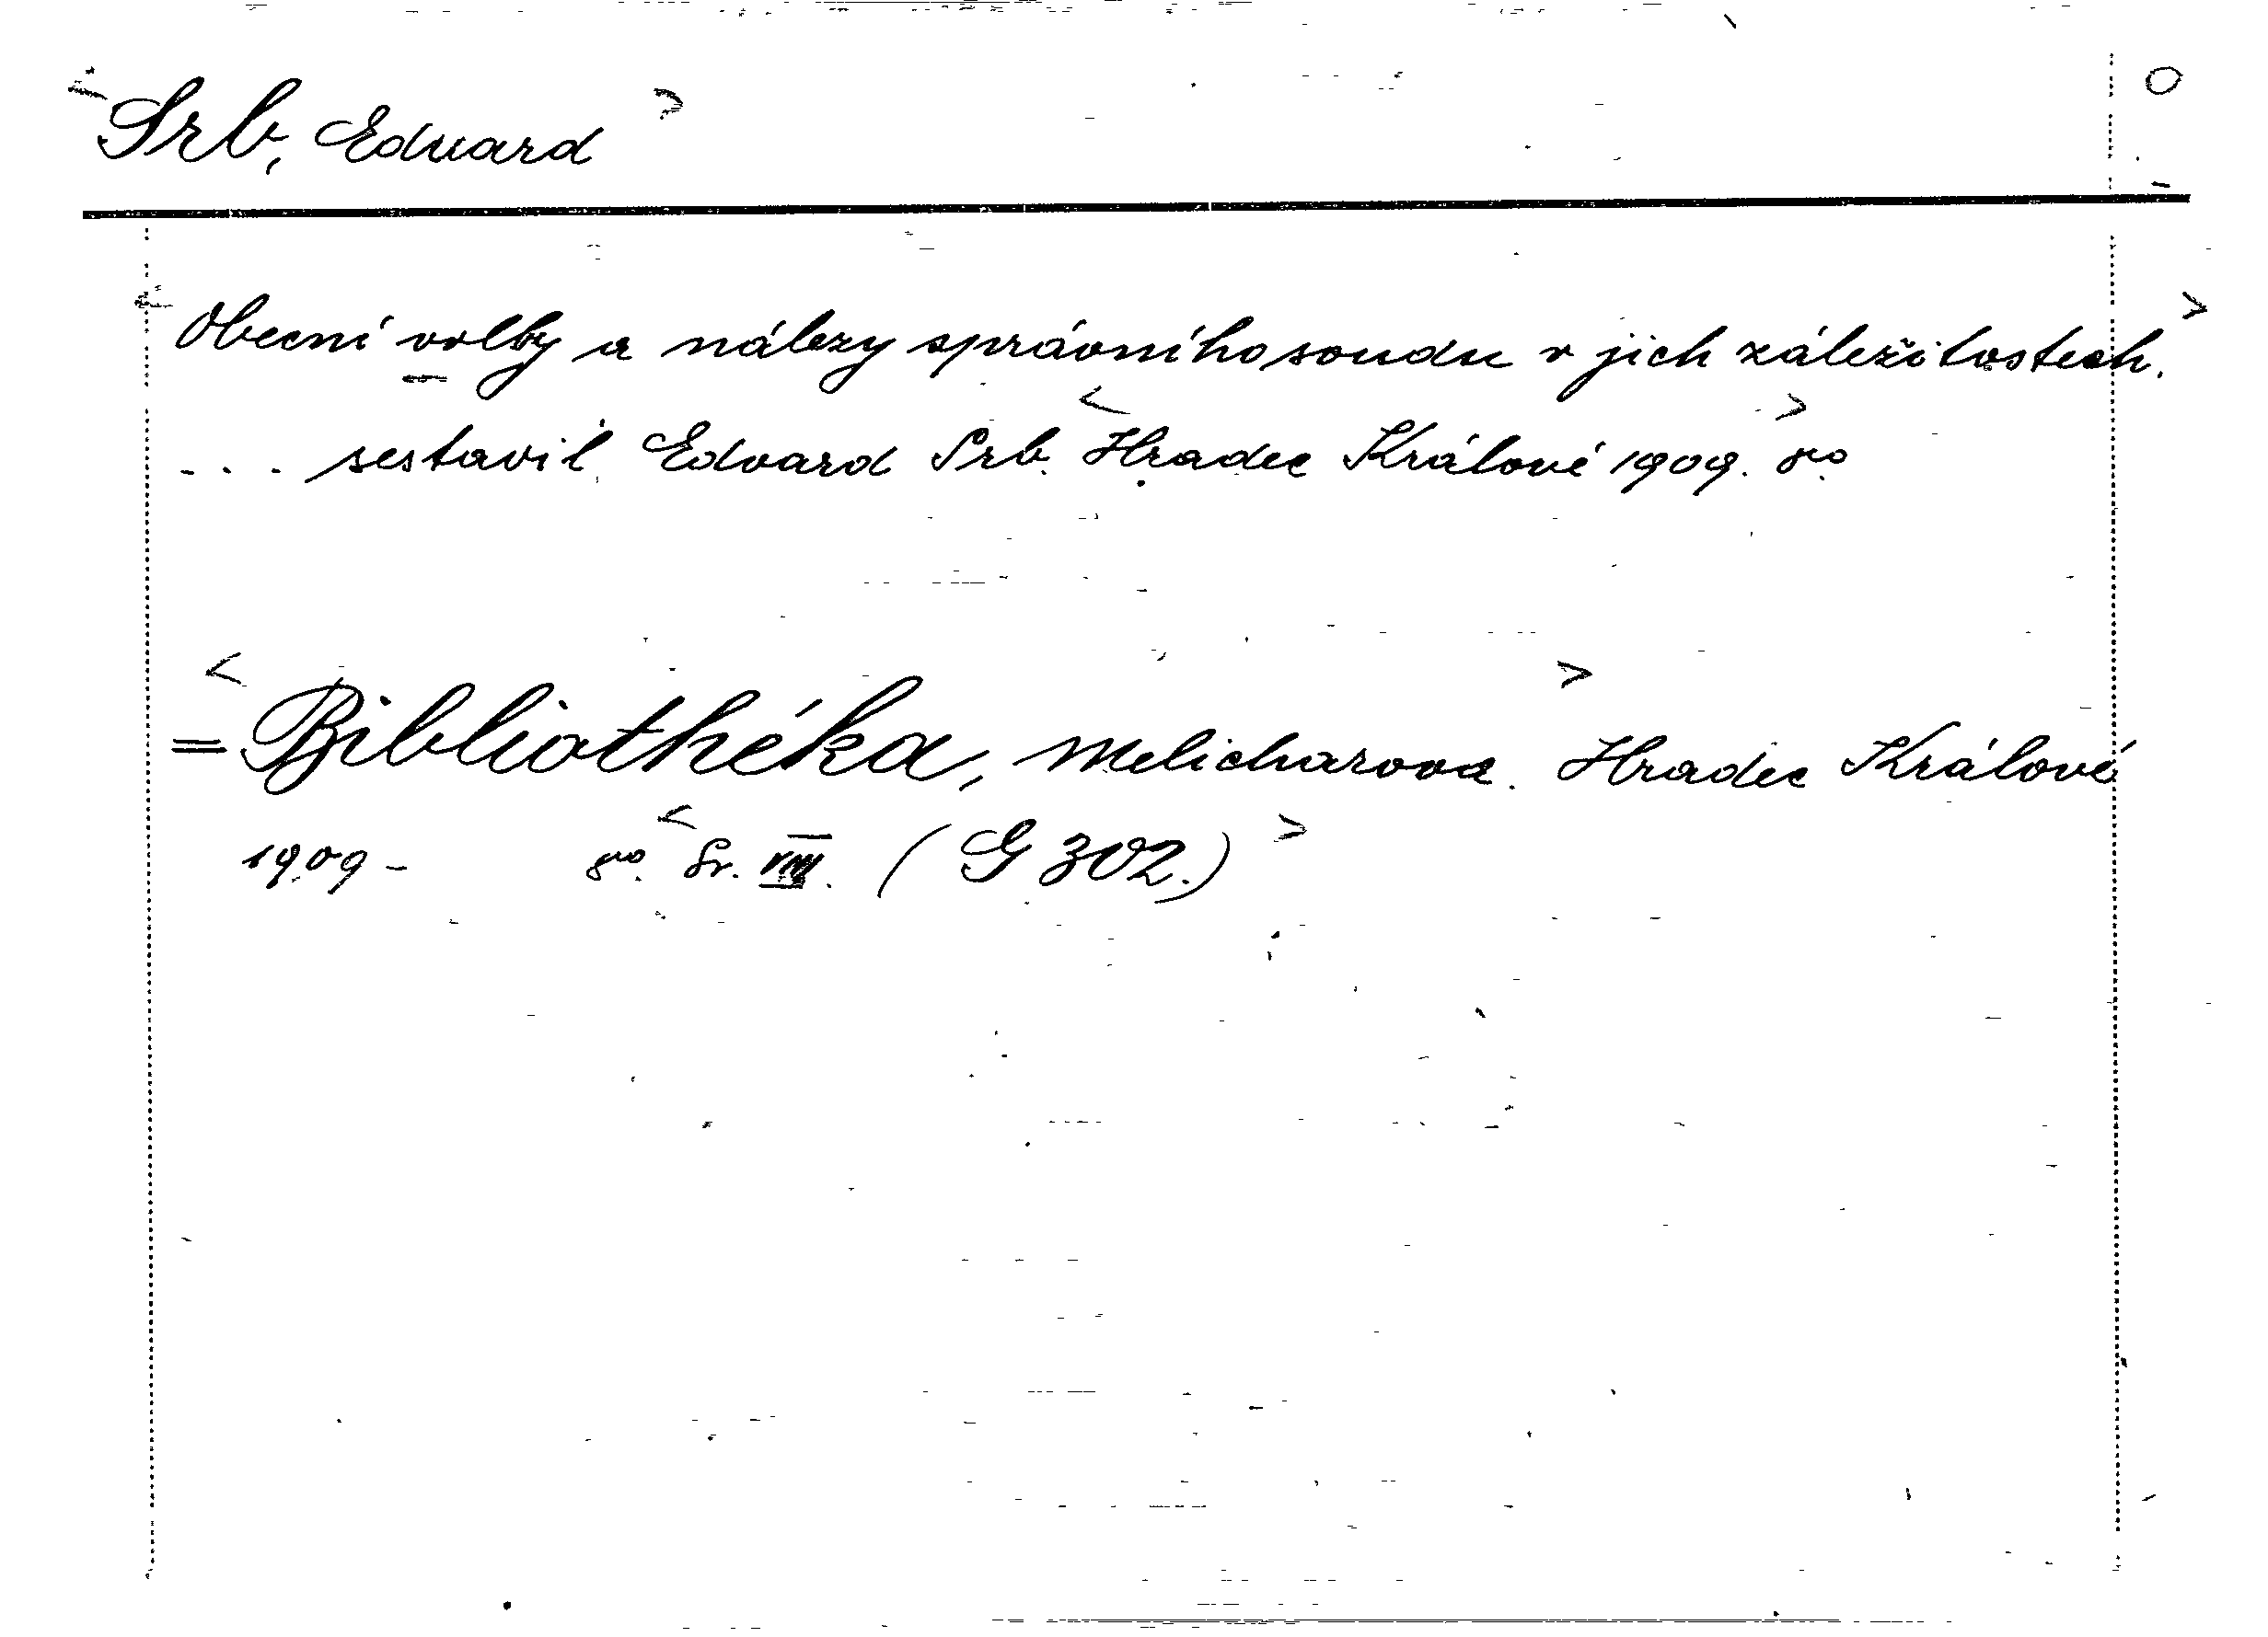 Srb, Eduard
Obecní volby a nálezy správního soudu v jich záležitostech.
... sestavil Edvard Srb. Hradec Králové 1909. 8vo
= Bibliothéka, Melicharova. Hradec Králové
1909 - 8vo. Sv. VIII. (G 302.)